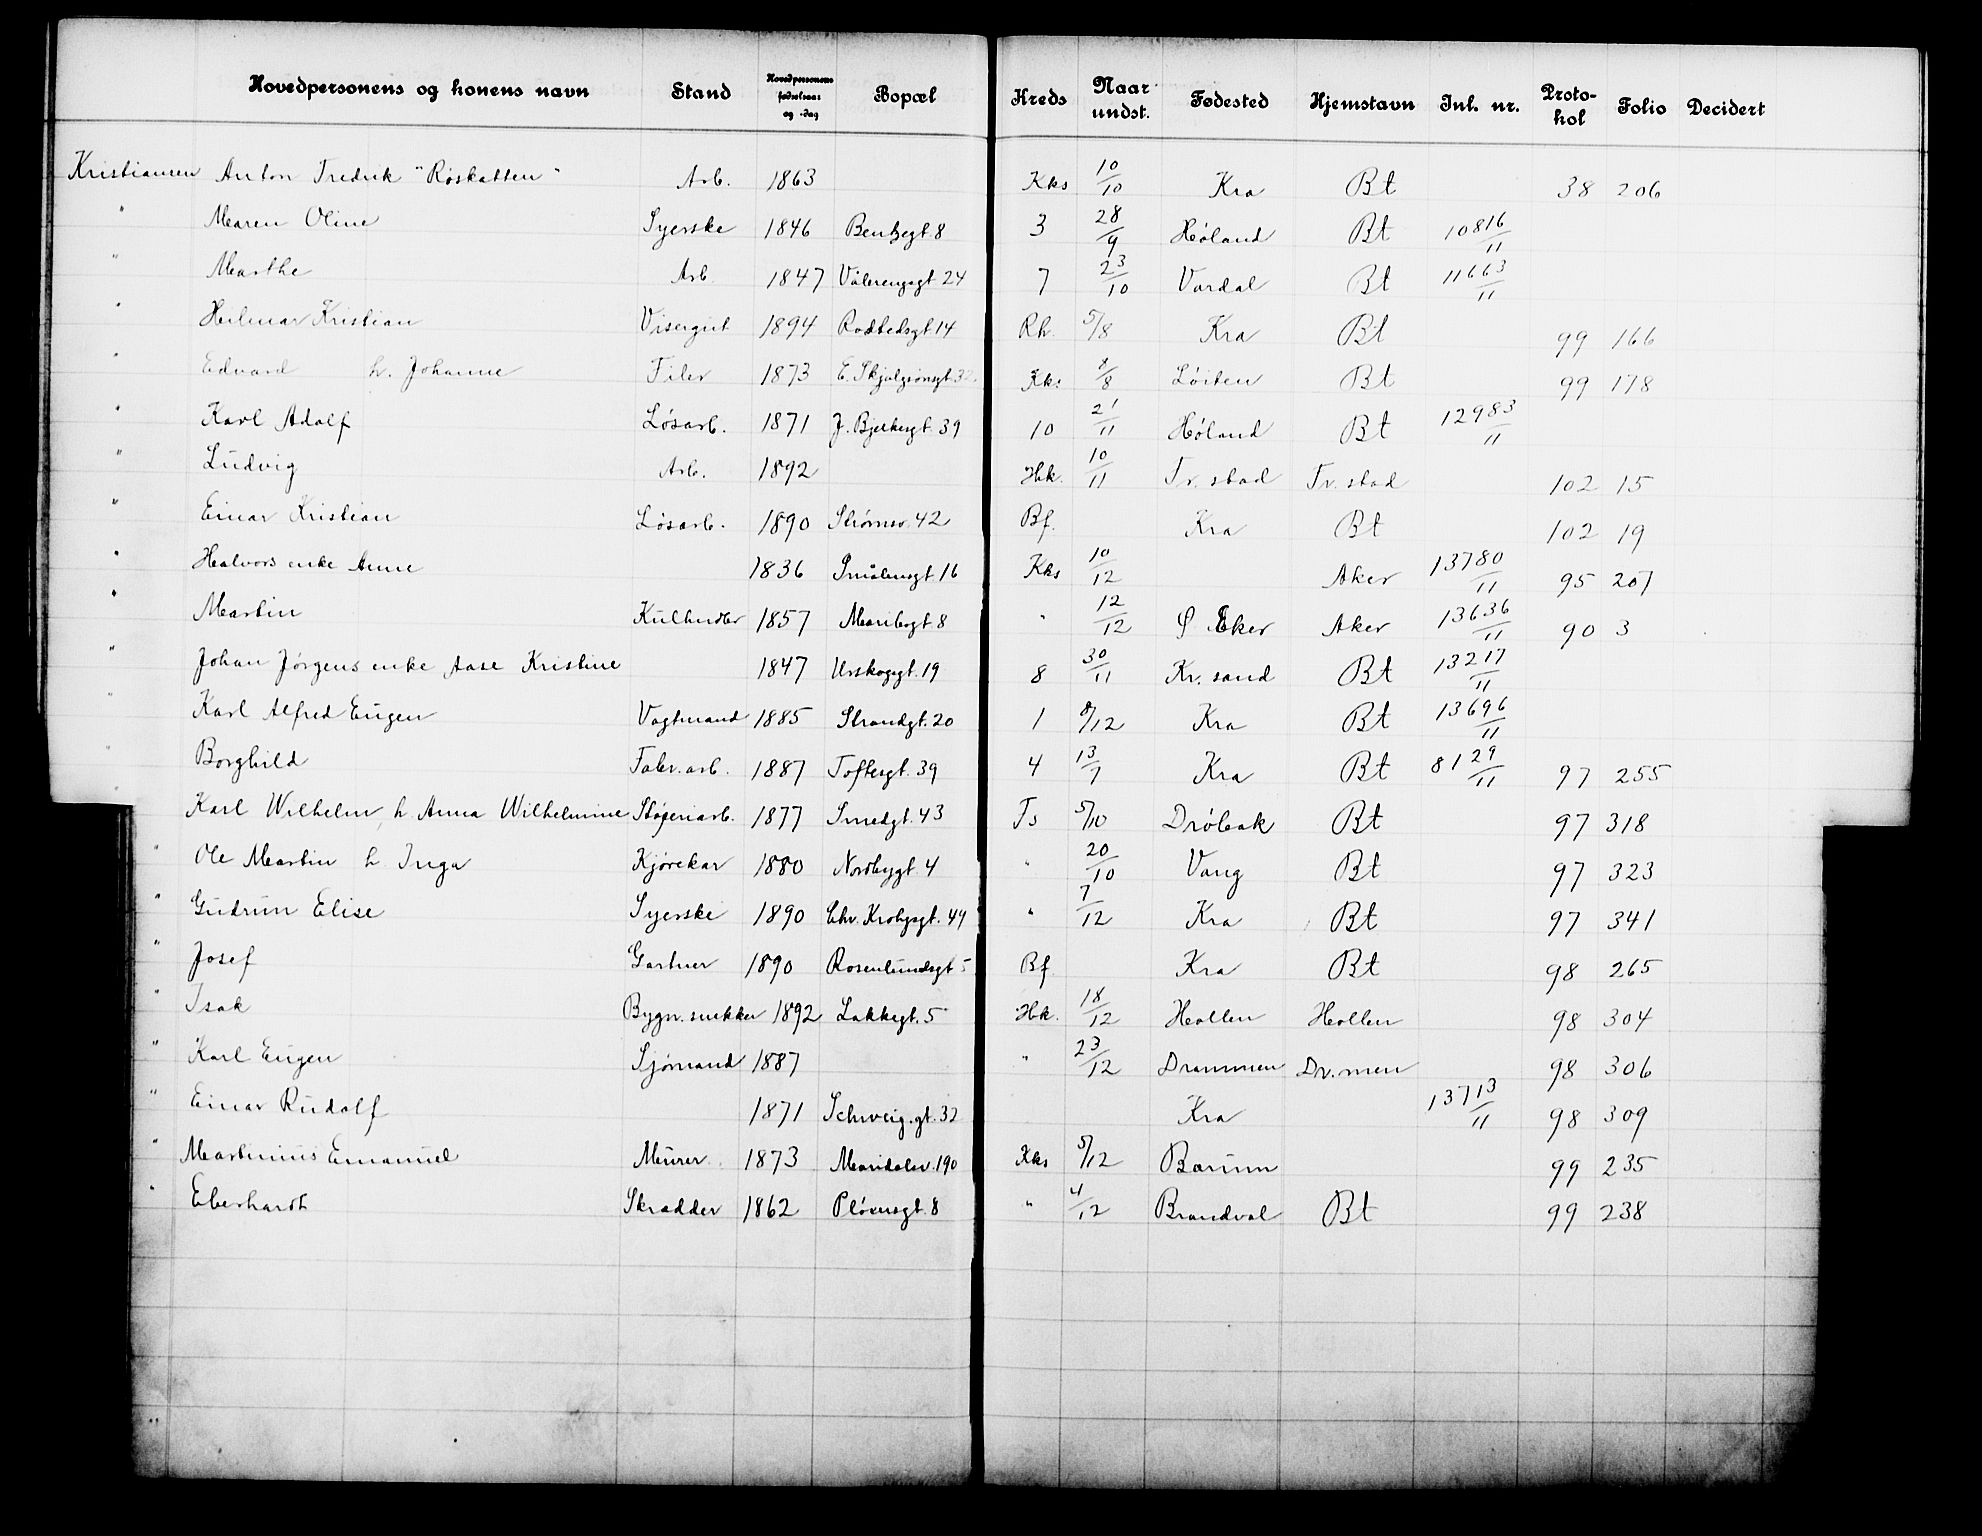 Hovedpersonens og konens navn Stand Hovedpersonens fødselsaar og -dag Bopæl Kreds Naar undst. Fødested Hjemstavn Inl. nr. Proto-kol Folio Decidert
Kristiansen Anton Fredrik "Røskatten" Arb. 1863 Kks 10/10 Kra Bt 38 206
" Maren Oline Syerske 1846 Bentsegt 8 3 28/9 Høland Bt 10816/11
" Marthe Arb 1847 Vålerengagt 24 7 23/10 Vardal Bt 11663/11
" Hilmar Kristian Visergut 1894 Rodtedsgt 14 Rh. 5/8 Kra Bt 99 166
" Edvard h. Johanne Filer 1873 E. Skjalgsonsgt 32 Kks 8/8 Löiten Bt 99 178
" Karl Adolf Løsarb. 1871 J. Bjerkesgt. 39 10 21/11 Høland Bt 12983/11
" Ludvig Arb. 1892 Hk. 10/11 Fr. stad Fr. stad 102 15
" Einar Kristian Løsarb. 1890 Strømsv. 42 Bf. Kra Bt 102 19
" Halvors enke Anne 1836 Smålensgt 16 Kks 10/12 Aker 13780/11 95 207
" Martin Kulhndlr 1857 Maribogt 8 " 12/12 Ø Eker Aker 13636/11 90 3
" Johan Jørgens enke Aase Kristine 1847 Urskoggt. 19 8 30/11 Kr. sand Bt 13217/11
" Karl Alfred Eugen Vogtmand 1885 Strandgt. 20 1 8/12 Kra Bt 13696/11
" Borghild Fabr. arb. 1887 Toftesgt. 39 4 13/7 Kra Bt 8129/11 97 255
Karl Wilhelm, h. Anna Wilhelmine Støperiarb. 1877 Smedgt. 43 Ts 5/10 Drøbak Bt 97 318
" Ole Martin h. Inga Kjørekar 1880 Nordbygt 4 " 20/10 Vang Bt 97 323
" Gudrun Elise Syerske 1890 Chr. Krohgsgt. 49 " 7/12 Kra Bt 97 341
" Josef Gartner 1890 Rosenlundsgt 5 Bf Kra Bt 98 265
" Isak Bygn. snekker 1892 Lakkegt. 5 Hk. 18/12 Hollen Hollen 98 304
" Karl Eugen Sjømand 1887 " 23/12 Drammen Dr. men 98 306
" Einar Rudolf 1871 Schweig. gt. 32 Kra 13713/11 98 309
" Martinius Emanuel Murer 1873 Maridalsv. 190 Kks 5/12 Bærum 99 235
" Eberhardt Skrædder 1862 Pløensgt. 8 " 4/12 Brandval Bt 99 238
"